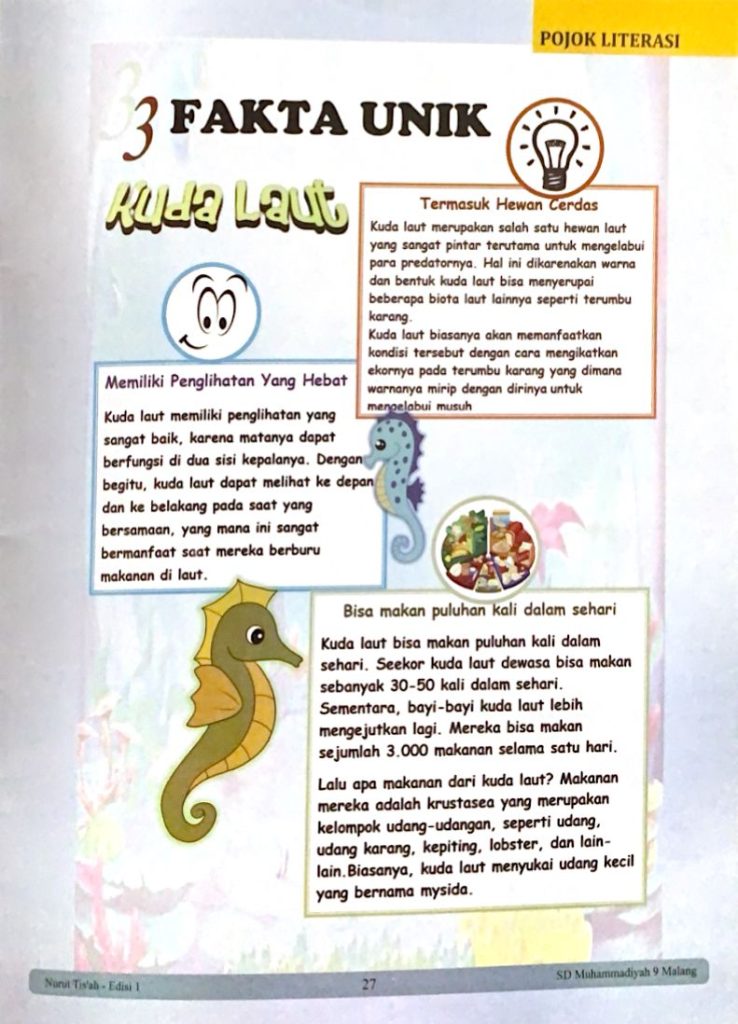 POJOK LITERASI
3 FAKTA UNIK
Kuda Laut
Termasuk Hewan Cerdas
Kuda laut merupakan salah satu hewan laut
yang sangat pintar terutama untuk mengelabui
para predatornya. Hal ini dikarenakan warna
dan bentuk kuda laut bisa menyerupai
beberapa biota laut lainnya seperti terumbu
karang.
Kuda laut biasanya akan memanfaatkan
kondisi tersebut dengan cara mengikatkan
ekornya pada terumbu karang yang dimana
warnanya mirip dengan dirinya untuk
mengelabui musuh
Memiliki Penglihatan Yang Hebat
Kuda laut memiliki penglihatan yang
sangat baik, karena matanya dapat
berfungsi di dua sisi kepalanya. Dengan
begitu, kuda laut dapat melihat ke depan
dan ke belakang pada saat yang
bersamaan, yang mana ini sangat
bermanfaat saat mereka berburu
makanan di laut.
Bisa makan puluhan kali dalam sehari
Kuda laut bisa makan puluhan kali dalam
sehari. Seekor kuda laut dewasa bisa makan
sebanyak 30-50 kali dalam sehari.
Sementara, bayi-bayi kuda laut lebih
mengejutkan lagi. Mereka bisa makan
sejumlah 3.000 makanan selama satu hari.
Lalu apa makanan dari kuda laut? Makanan
mereka adalah krustasea yang merupakan
kelompok udang-udangan, seperti udang,
udang karang, kepiting, lobster, dan lain-
lain.Biasanya, kuda laut menyukai udang kecil
yang bernama mysida.
Nurut Tis'ah - Edisi 1
27
SD Muhammadiyah 9 Malang